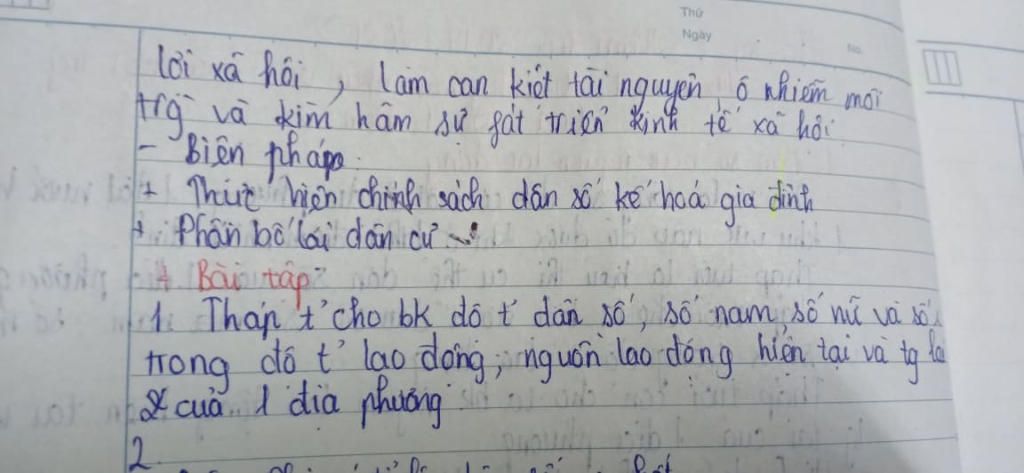 Thứ
Ngày
No.
lời xã hôi, làm cạn kiệt tài nguyên, ô nhiễm môi
trg và kìm hãm sự fát triển kinh tế xã hôi
- Biện pháp
+ Thực hiện chính sách dân số kế hoá gia đình
+ Phân bố lại dân cư
+ Bài tập:
1. Tháp t' cho bk đô t' dân số, số nam, số nữ và số
trong đô t' lao động, nguồn lao động hiện tại và tg la
của 1 địa phương
2